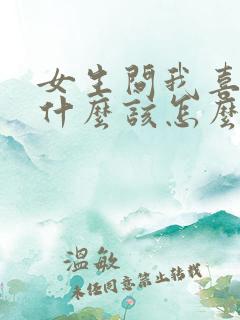 女生問我喜
什麼該怎麼
溫敏
未任同意禁止轉載